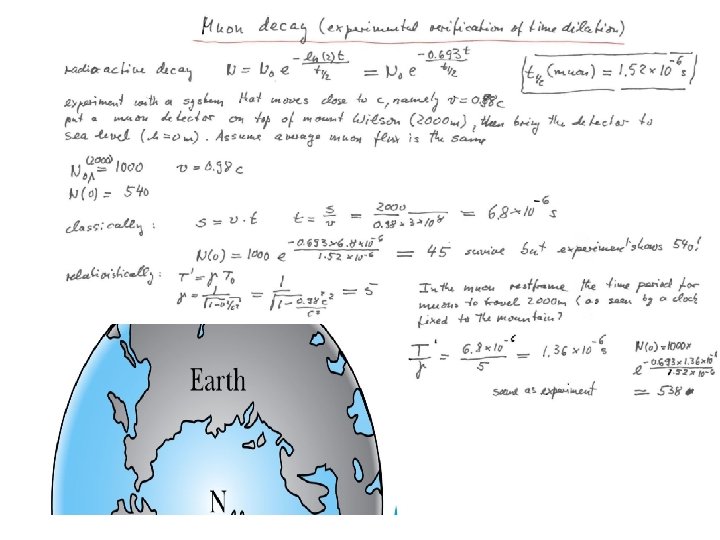 Muon decay (experimental verification of time dilation)
radioactive decay N = N₀ e^(-ln(2)t / t½) = N₀ e^(-0.693t / t½) (t½ (muon) = 1.52 × 10⁻⁶ s)
experiment with a system that moves close to c, namely v = 0.98c
put a muon detector on top of mount Wilson (2000m), then bring the detector to
sea level (h = 0m). Assume average muon flux is the same
(2000) = 1000 v = 0.98c
N(0) = 540
classically: s = v·t t = s/v = 2000 / (0.98 × 3×10⁸) = 6.8×10⁻⁶ s
N(0) = 1000 e^(-0.693×6.8×10⁻⁶ / 1.52×10⁻⁶) = 45 survive but experiment shows 540!
relativistically: T' = γ T₀
γ = 1/√(1-v²/c²) = 1/√(1-0.98²c²/c²) = 5
In the muon restframe the time period for
muons to travel 2000m (as seen by a clock
fixed to the mountain?
T'/γ = 6.8×10⁻⁶ / 5 = 1.36×10⁻⁶ s
N(0) = 1000×
e^(-0.693×1.36×10⁻⁶ / 1.52×10⁻⁶)
same as experiment = 538
Earth
N